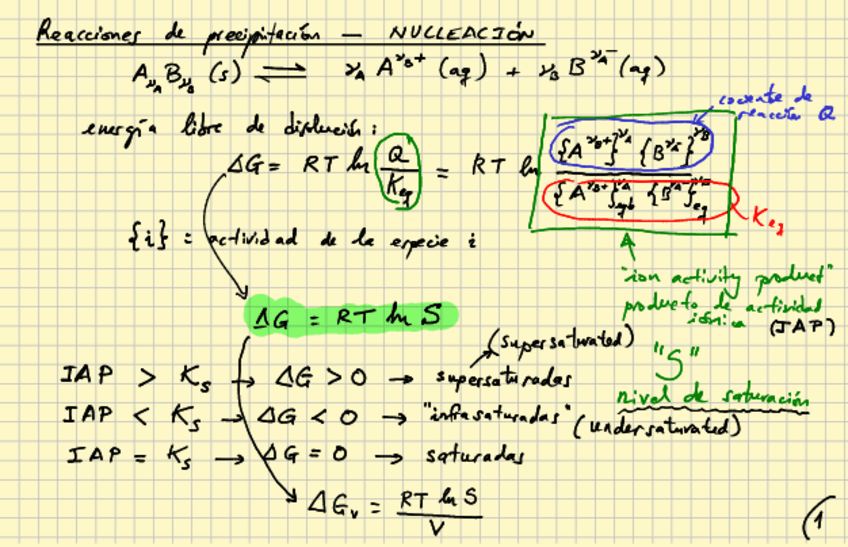 Reacciones de precipitación — NUCLEACIÓN
A_νA B_νB (s) ⇌ νA A^νB+ (aq) + νB B^νA- (aq)
cociente de reacción Q
energía libre de disolución:
ΔG = RT ln Q/Keq = RT ln {A^νB+}^νA {B^νA-}^νB / {A^νB+}^νA_eq {B^νA-}^νB_eq
Keq
{i} = actividad de la especie i
"ion activity product"
producto de actividad
iónica (IAP)
ΔG = RT ln S
(supersaturated)
"S"
nivel de saturación
IAP > Ks → ΔG > 0 → supersaturadas
IAP < Ks → ΔG < 0 → "infrasaturadas" (undersaturated)
IAP = Ks → ΔG = 0 → saturadas
ΔGv = RT ln S / V
(1